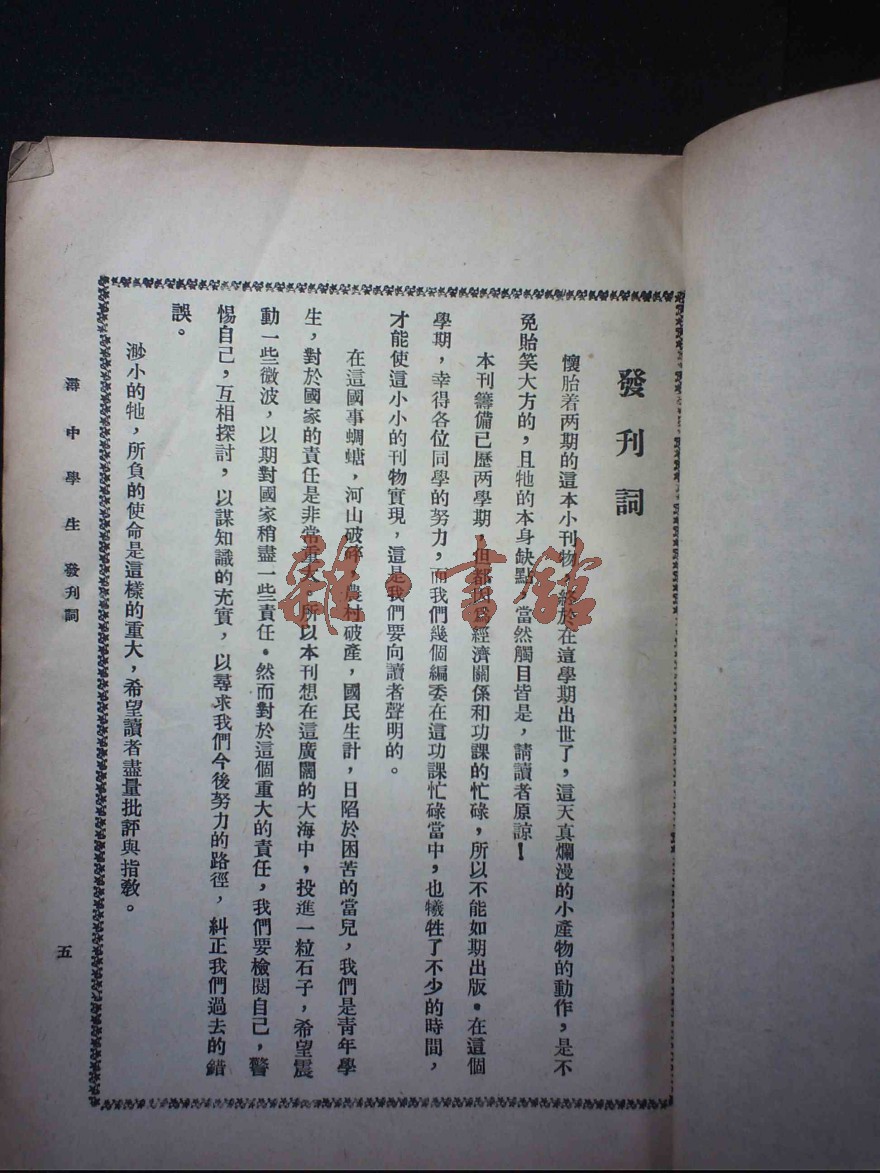 發刊詞
懷胎着两期的這本小刊物，終於在這學期出世了，這天真爛漫的小產物的動作，是不
免貽笑大方的，且牠的本身缺點，當然觸目皆是，請讀者原諒！
本刊籌備已歷两學期，但都因爲經濟關係和功課的忙碌，所以不能如期出版。在這個
學期，幸得各位同學的努力，而我們幾個編委在這功課忙碌當中，也犧牲了不少的時間，
才能使這小小的刊物實現，這是我們要向讀者聲明的。
在這國事蜩螗，河山破碎，農村破產，國民生計，日陷於困苦的當兒，我們是青年學
生，對於國家的責任是非常重大，所以本刊想在這廣闊的大海中，投進一粒石子，希望震
動一些微波，以期對國家稍盡一些責任。然而對於這個重大的責任，我們要檢閱自己，警
惕自己，互相探討，以謀知識的充實，以尋求我們今後努力的路徑，糾正我們過去的錯
誤。
渺小的牠，所負的使命是這樣的重大，希望讀者盡量批評與指教。
中學生 發刊詞
五
雜·書館